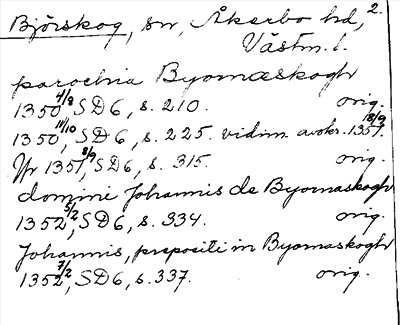 Björskog, sn, Åkerbo hd, 2.
Västm. l.
parochia Byomæskogh
1350 4/8, SD 6, s. 210. orig.
1350 11/10, SD 6, s. 225. vidim. avskr. 1357 18/9.
Yr 1351 8/9, SD 6, s. 315. orig.
domini Johannis de Byornaskogh
1352 5/2, SD 6, s. 334. orig.
Johannis, prepositi in Byomaskogh
1352 7/2, SD 6, s. 337. orig.